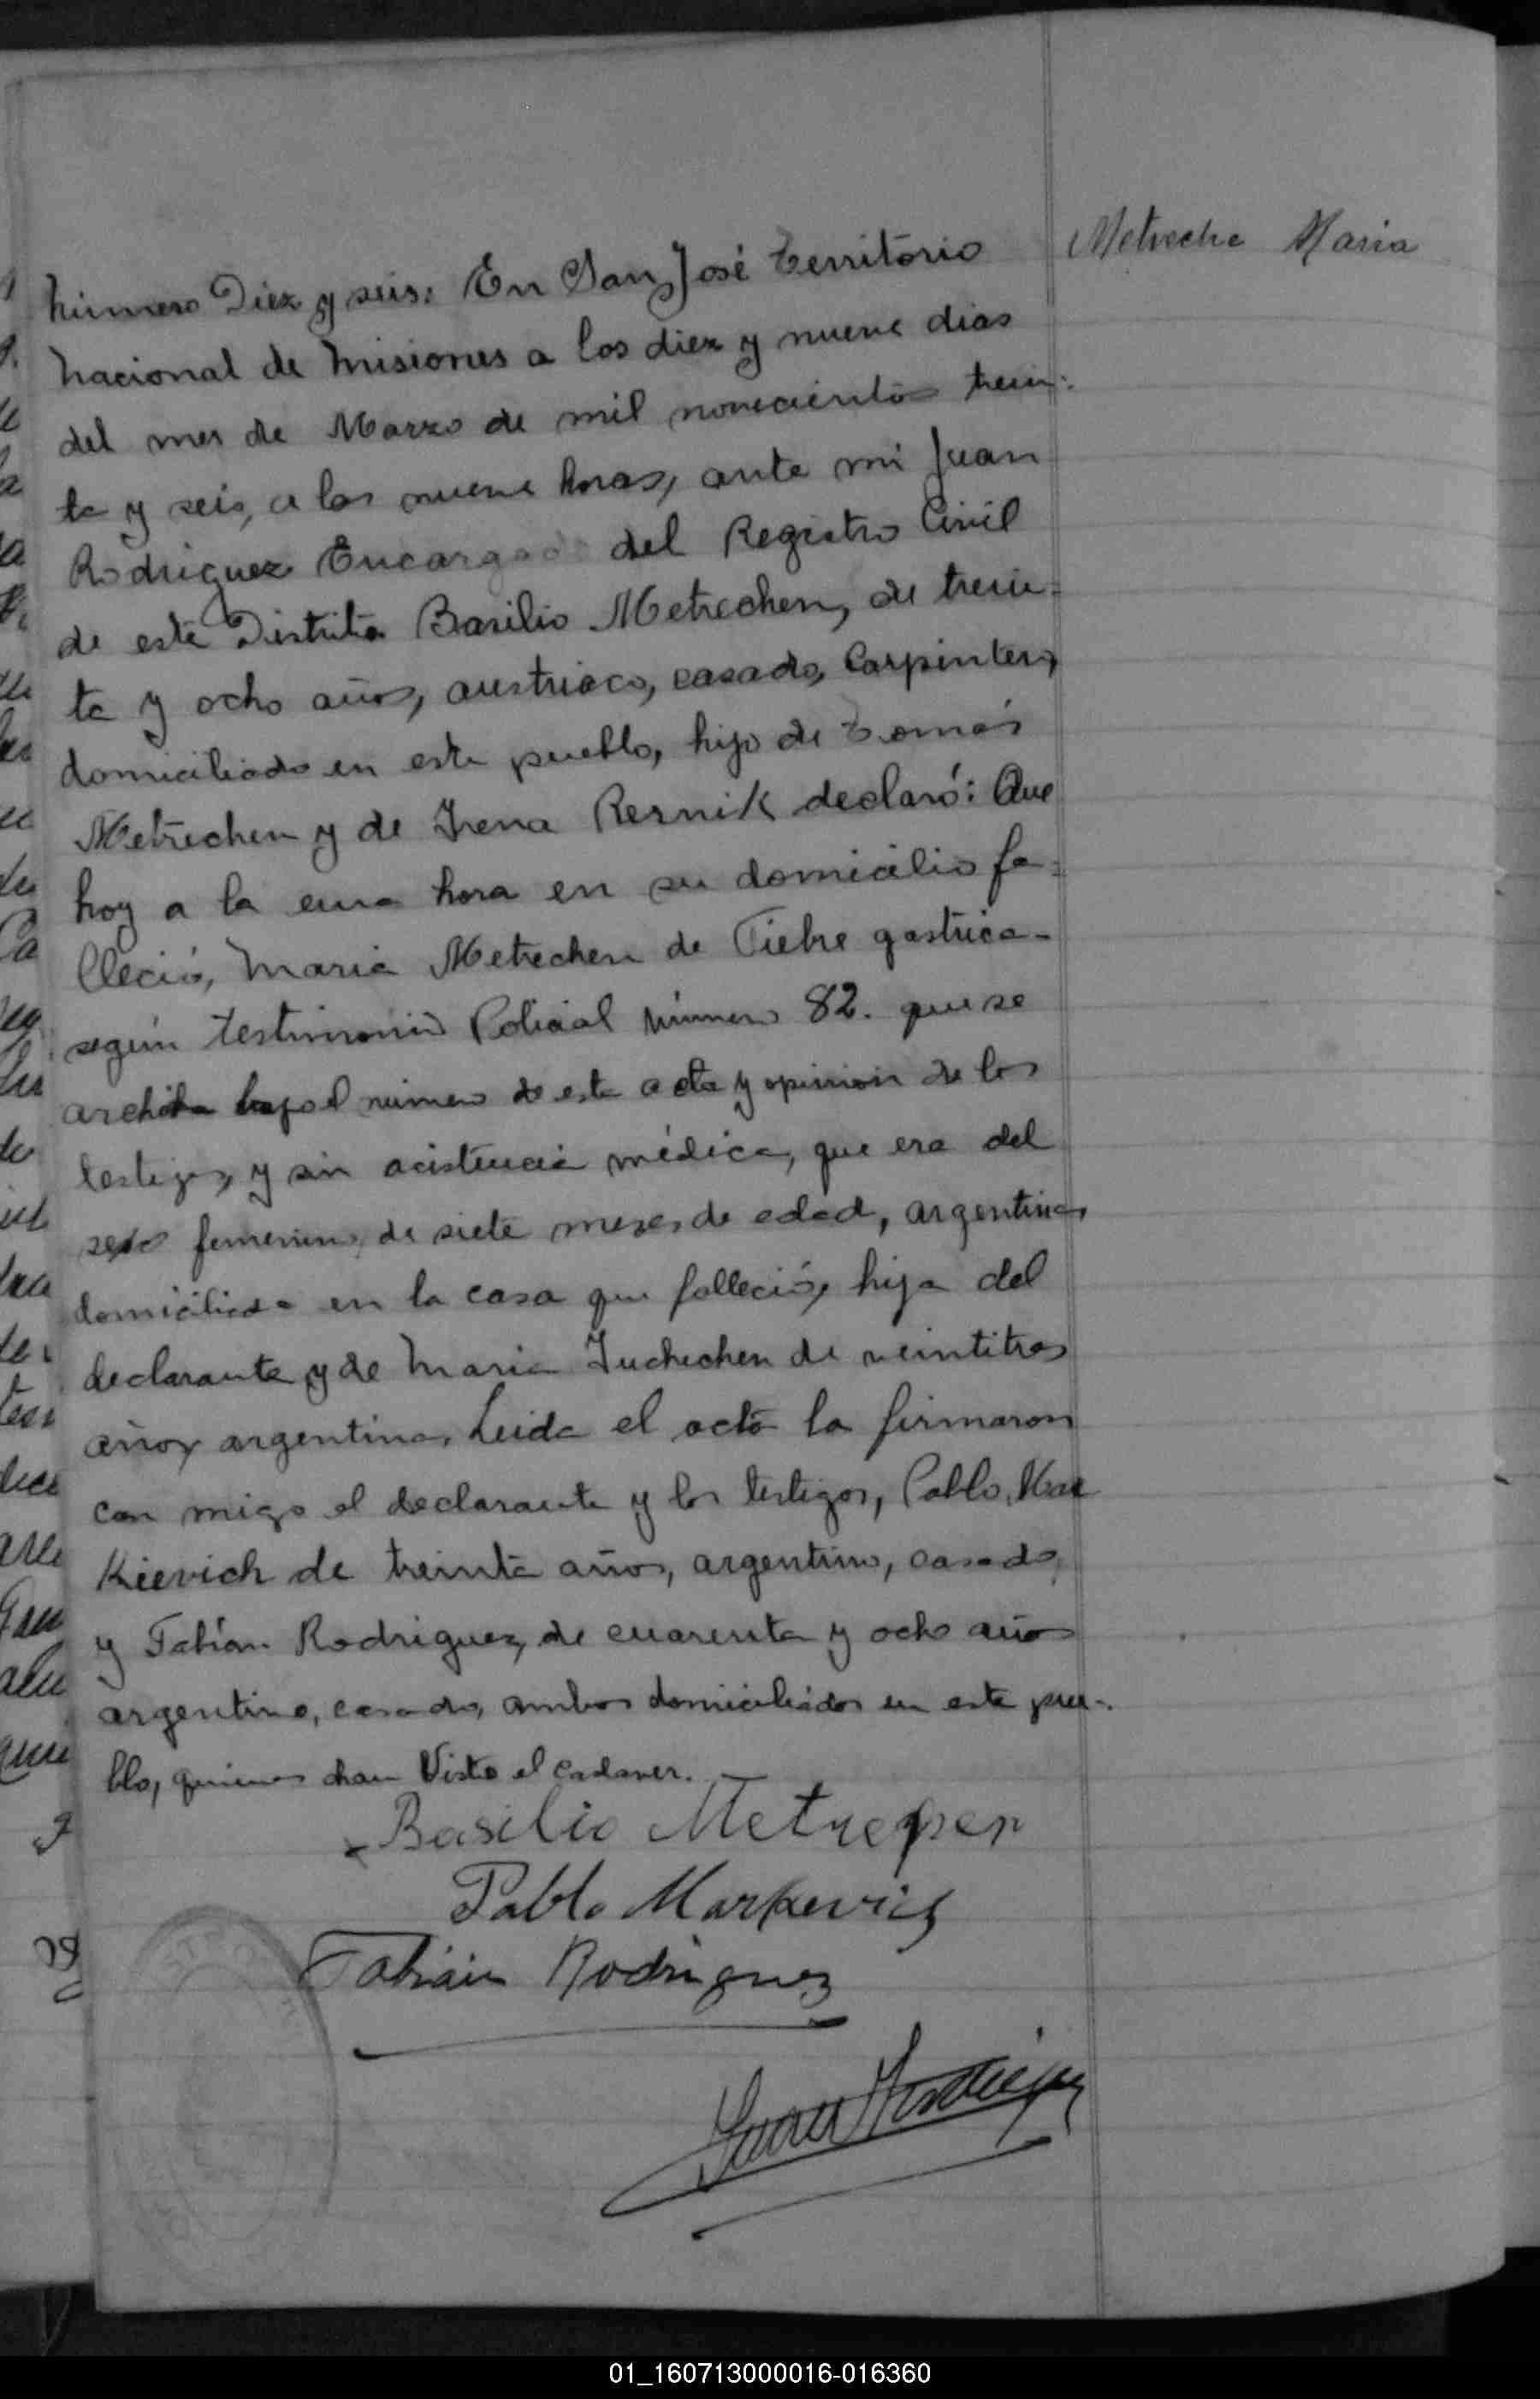 Metreche Maria
Número Diez y seis: En San José Territorio
Nacional de Misiones a los diez y nueve dias
del mes de Marzo de mil novecientos trein-
ta y seis, a las nueve horas, ante mi Juan
Rodriguez Encargado del Registro Civil
de este Distrito Basilio Metrechen, de trein-
ta y ocho años, austriaco, casado, Carpintero,
domiciliado en este pueblo, hijo de Tomás
Metrechen y de Irena Resnik declaró: Que
hoy a la una hora en su domicilio fa-
lleció, Maria Metrechen de Fiebre gastrica-
según testimonio Policial número 82. que se
archiva bajo el número de esta acta y opinion de los
testigos, y sin acistencia médica, que era del
sexo femenino, de siete meses de edad, argentina,
domiciliada en la casa que falleció, hija del
declarante y de Maria Juchechen de veintitres
años argentina. Leida el acta la firmaron
con migo el declarante y los testigos, Pablo Mar
Kievich de treinta años, argentino, casado,
y Fabían Rodriguez, de cuarenta y ocho años
argentino, casado, ambos domiciliados en este pue-
blo, quienes han Visto el cadaver.
Basilio Metrechen
Pablo Markevich
Fabián Rodriguez
Juan Rodriguez
01_160713000016-016360